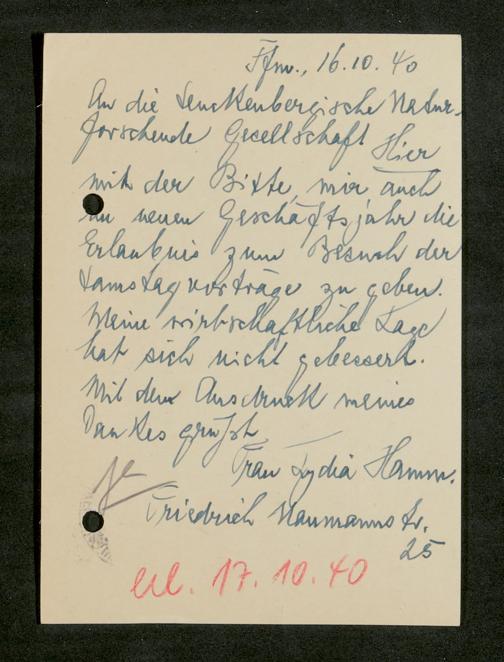 Ffm., 16.10.40
An die Senckenbergische Natur-
forschende Gesellschaft
Hier
mit der Bitte, mir auch
im neuen Geschäftsjahr die
Erlaubnis zum Besuch der
Samstagvorträge zu geben.
Meine wirtschaftliche Lage
hat sich nicht gebessert.
Mit dem Ausdruck meines
Dankes grüßt
Frau Lydia Hamm.
Friedrich Naumannstr.
25
erl. 17.10.40